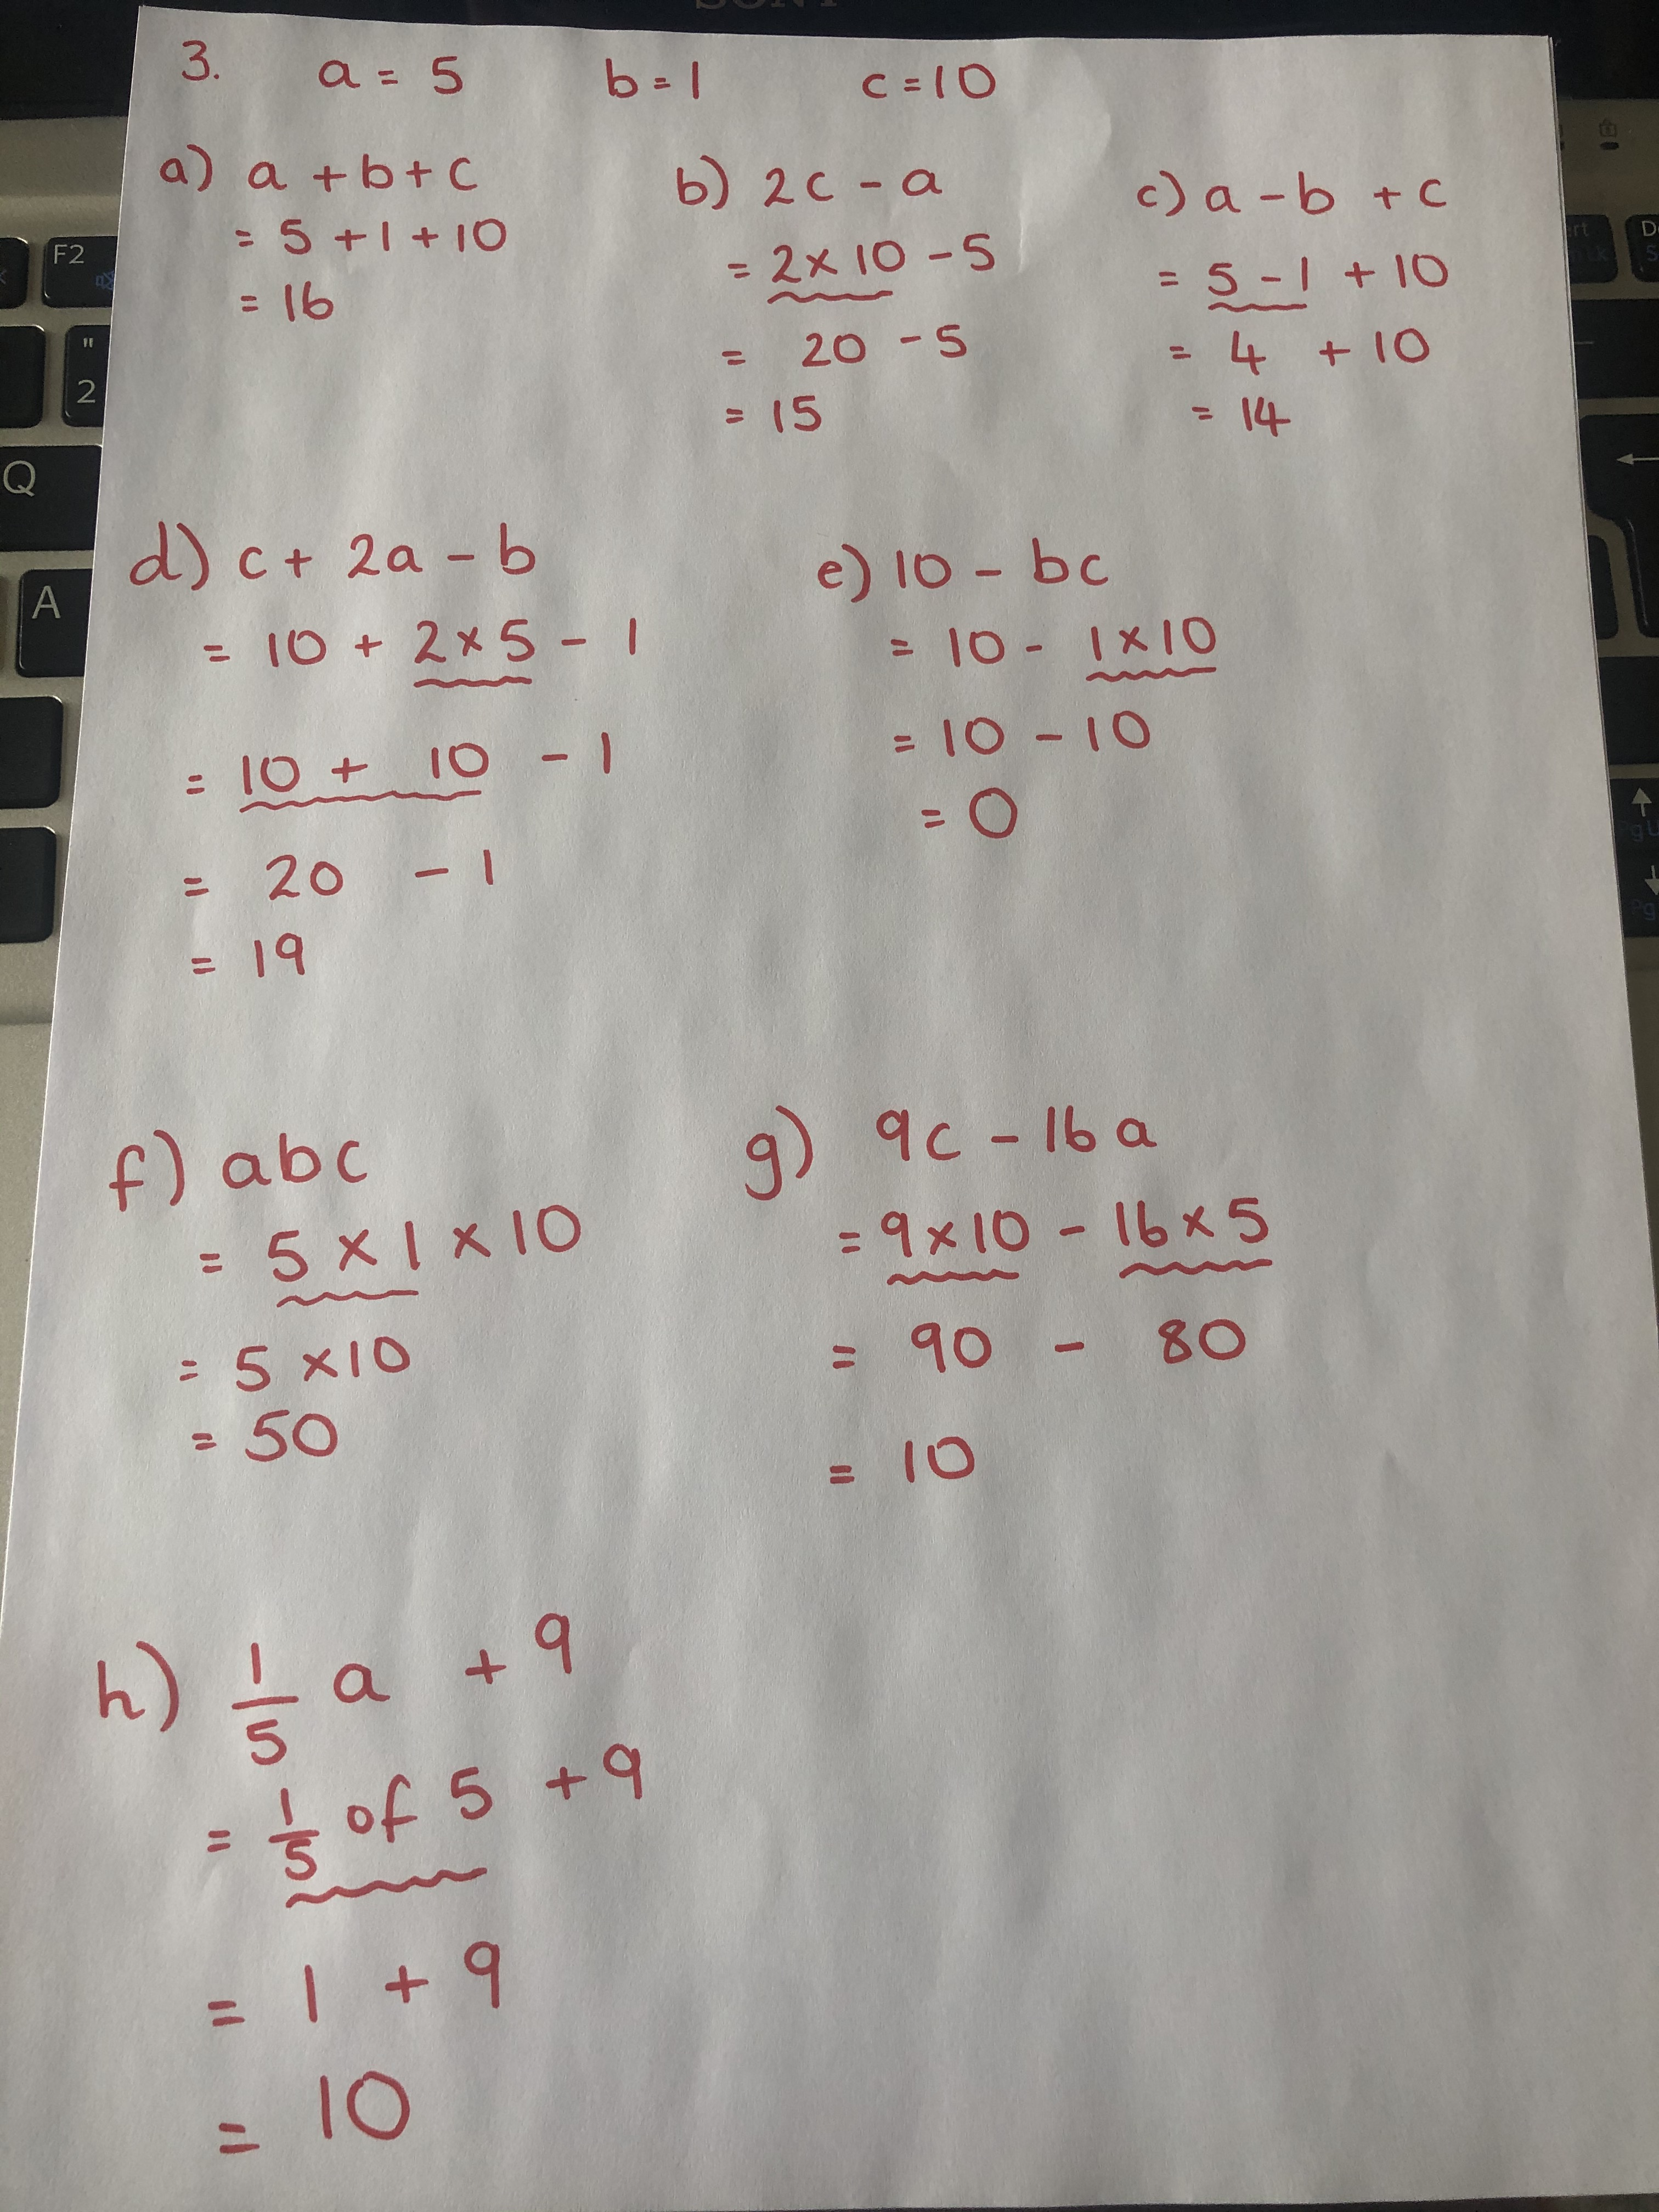 SONY
3. a = 5 b = 1 c = 10
a) a + b + c
= 5 + 1 + 10
= 16
b) 2c - a
= 2 × 10 - 5
= 20 - 5
= 15
c) a - b + c
= 5 - 1 + 10
= 4 + 10
= 14
d) c + 2a - b
= 10 + 2 × 5 - 1
= 10 + 10 - 1
= 20 - 1
= 19
e) 10 - bc
= 10 - 1 × 10
= 10 - 10
= 0
f) abc
= 5 × 1 × 10
= 5 × 10
= 50
g) 9c - 16a
= 9 × 10 - 16 × 5
= 90 - 80
= 10
h) 1/5 a + 9
= 1/5 of 5 + 9
= 1 + 9
= 10
F2
"
2
Q
A